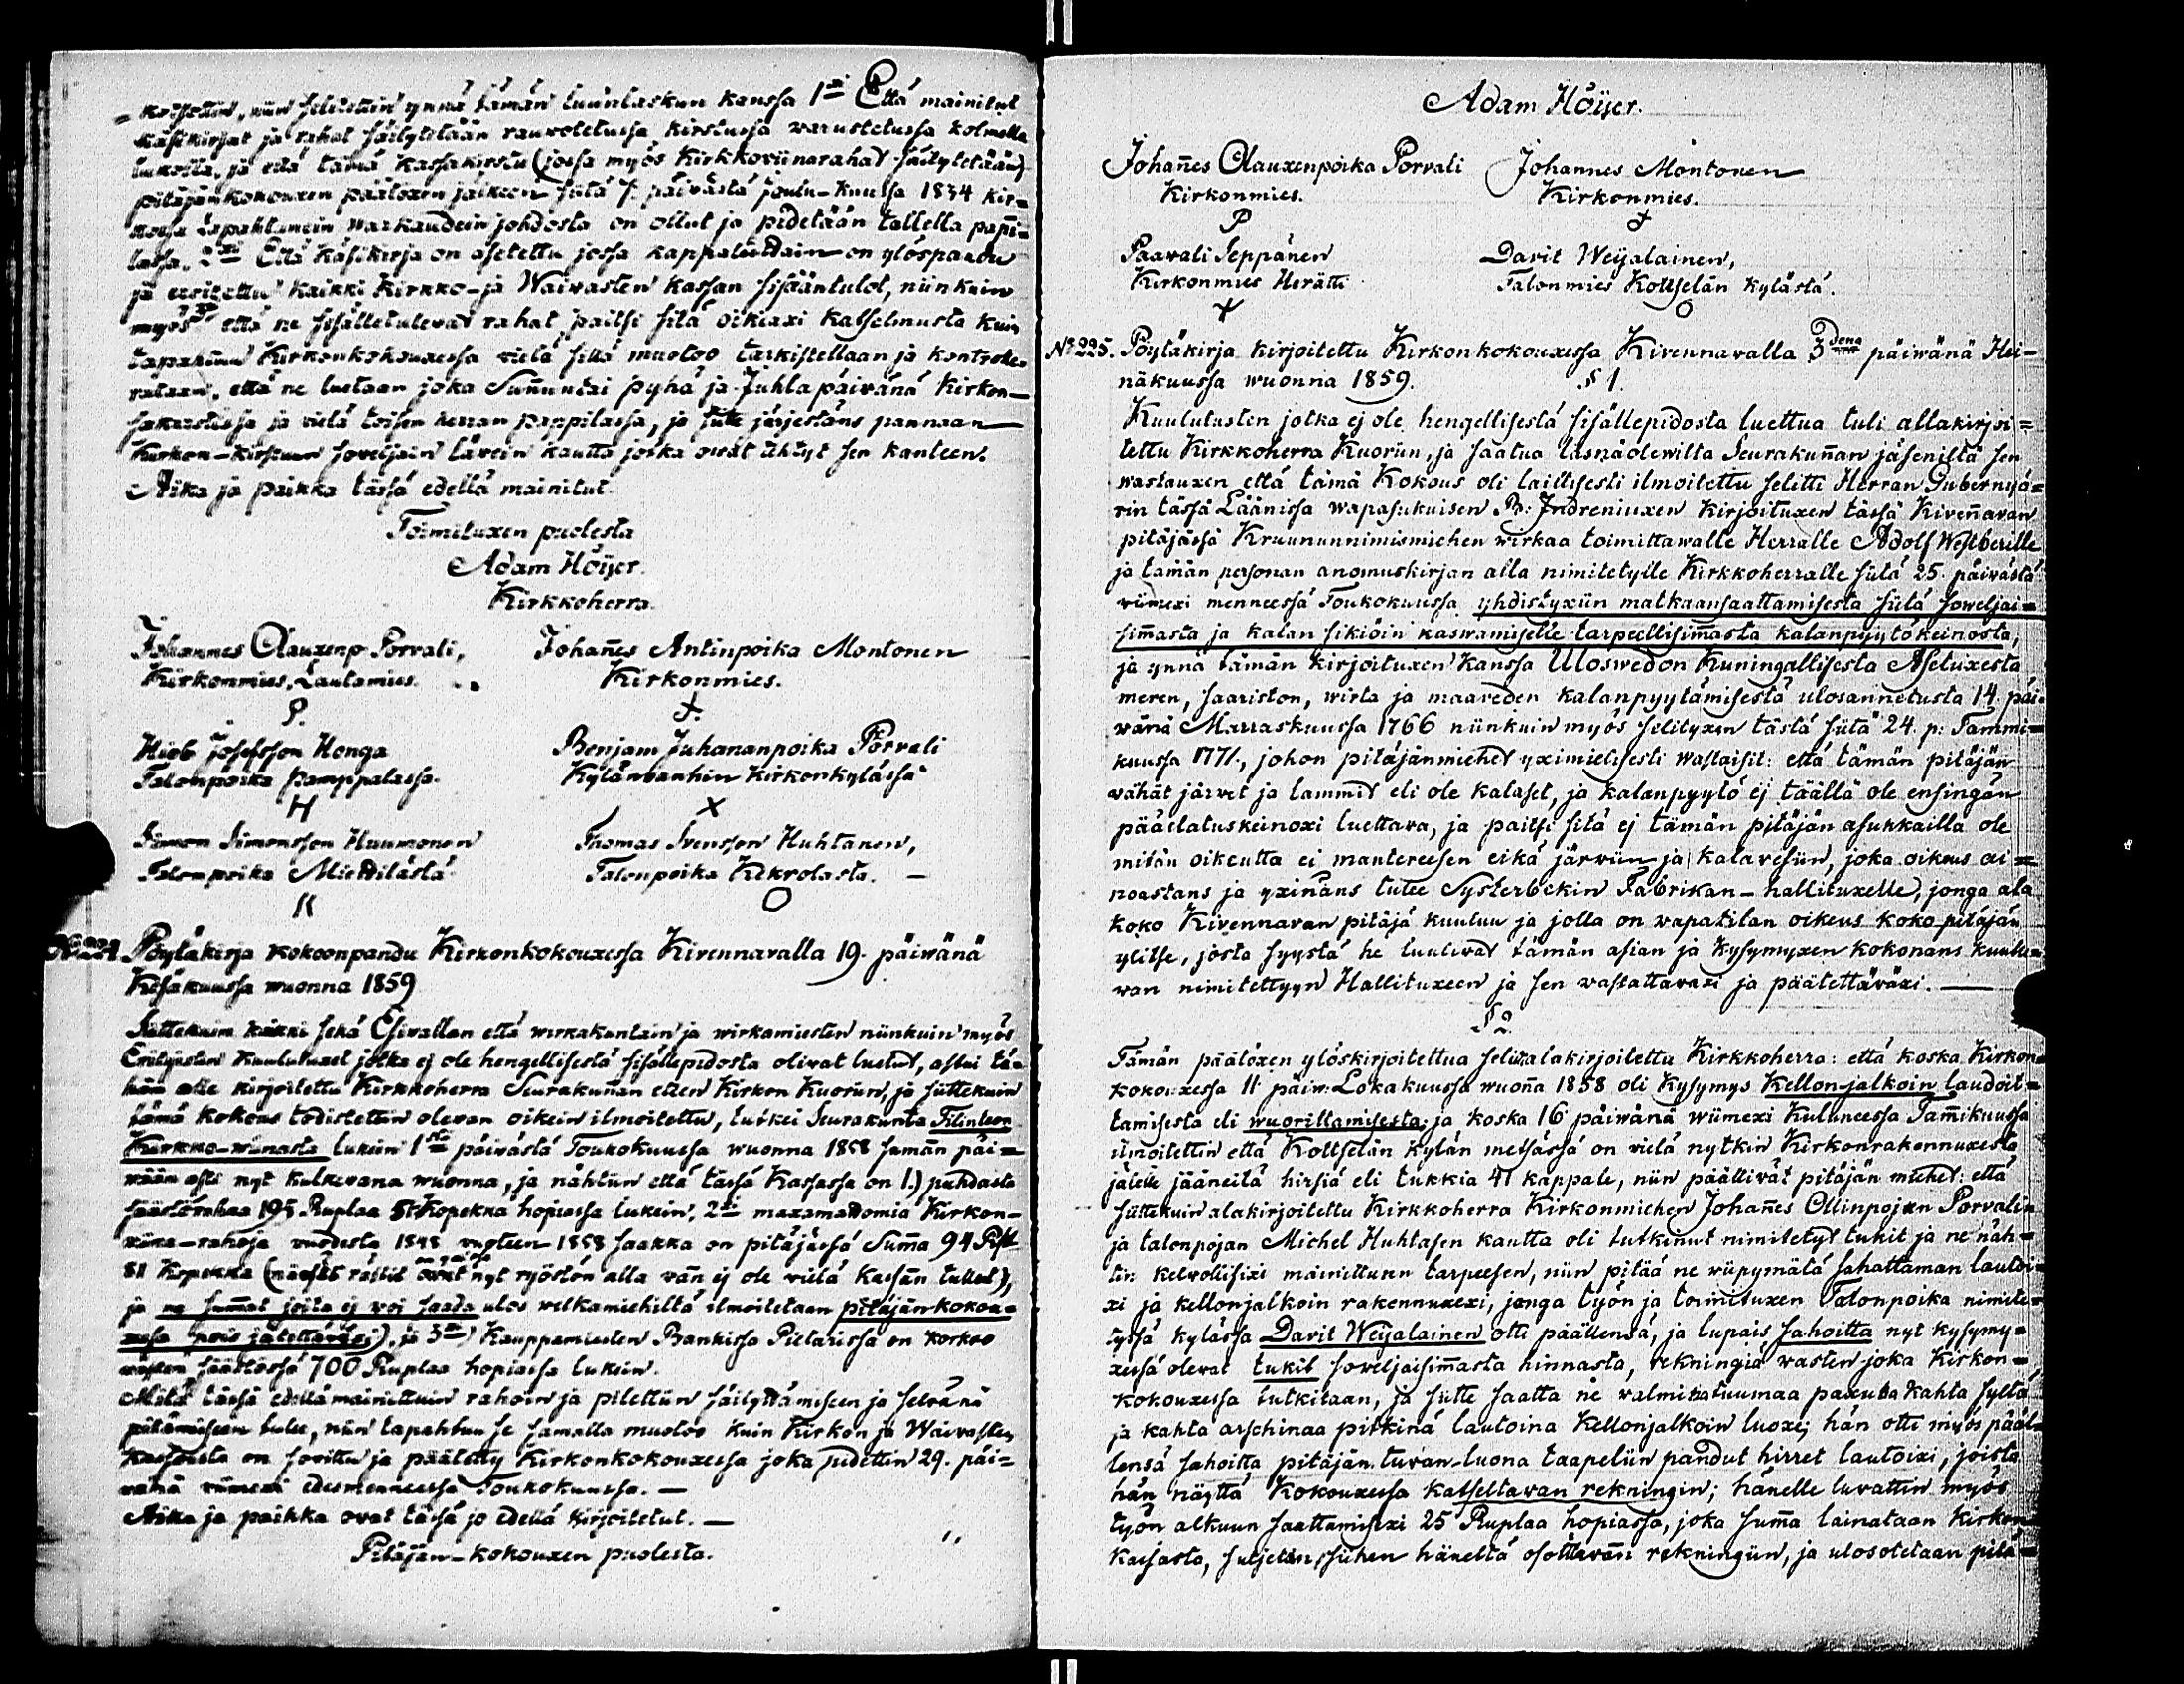 niin selitettin ynnä tämän luunlaskun kanssa 1<sup>xi</sup> Että mainitut
käsikirjat ja rahat säilytetään rauvotetussa kirstussa warustetussa kolmella
lukolla, ja että tämä Kassakirstu (jossa myös Kirkkoviinarahat säilytetään)
pitäjänkokouxen päätoxen jälkeen siitä 7. päivästä Joulu-Kuussa 1834 kir=
kossa tapahtunein warkaudein johdosta on ollut ja pidetään tallella papi=
lassa. 2<sup>xi</sup> Että Käsikirja on asetettu jossa kappaluttain on ylöspandu
ja eroitettu kaikki Kirkko- ja Waiwasten Kassan sisääntulot, niinkuin
myös että ne sisälletulevat rahat, paitsi sitä oikiaxi katselmusta kuin
tapahtuu Kirkonkokouxessa vielä sillä muotoo tarkistellaan ja kontrole-
rataan, että ne luetaan joka Sunnuntai pyhä ja Juhlapäivänä Kirkon-
sakaristissa ja vielä toisen kerran pappilassa, ja siitte järjestäns pannaan
Kirkon-Kirstuun soveljain läwein kautta jotka owat tehtyt sen kanteen.
Aika ja paikka tässä edellä mainitut.
Toimituxen puolesta
Adam Höijer.
Kirkkoherra.
Johannes Olauxenp Porvali, Johañes Antinpoika Montonen
Kirkonmies, Lautamies. Kirkonmies.
P. +.
Hiob Josefsson Honga Benjam Juhananpoika Porvali
Talonpoika Pamppalassa. Kylänvanhin Kirkonkylässä
H X
Simon Simonsson Huumonen Thomas Svensson Huhtanen,
Talonpoika Miettilästä Talonpoika Kekrolasta. —
O
N:o 224 Pöytäkirja kokoonpandu Kirkonkokouxessa Kivennavalla 19. päiwänä
Kesäkuussa wuonna 1859
Siittekuin kaikki sekä Esiwallan että wirkakuntain ja wirkamiesten niinkuin myös
Erityisten Kuulutuxet jotka ej ole hengellisestä sisällepidosta olivat luetut, astui tä-
hän alle kirjoitettu Kirkkoherra Seurakuñan eteen Kirkon Kuoriin, ja siittekuin
tämä kokous todistettin olevan oikein ilmoitettu, tutkei Seurakunta Tilinteon
Kirkko-wiinasta lukein 1<sup>stä</sup> päivästä Toukokuussa wuonna 1858 samañ päi=
wään asti nyt kulkevana wuonna, ja nähtiin että tässä Kassassa on 1.) puhdasta
säästörahaa 195 Ruplaa 57 Kopekka hopiassa lukein, 2<sup>xi</sup> maxamattomia Kirkon-
wiina-rahoja vuodesta 1848 vuoteen 1858 saakka on pitäjässä Suma 94 Rplt
81 Kopekka (näistä rästit ovat nyt ryöstön alla van ej ole vielä kassan tullut),
ja ne sumat joita ej voi saada ulos velkamiehiltä ilmoitetaan pitäjänkokou=
xessa pois jätettäväxi), ja 3<sup>xi</sup> Kauppamiesten Bankissa Pietarissa on korkoo
wasten säästössä 700 Ruplaa hopiassa lukein.
Mitä tässä edellämainittuin rahoin ja pilettiin säilyttämiseen ja selvänä
pitämiseen tulee, niin tapahtuu se samalla muotoo kuin Kirkon ja Waivasten
Kassoista on sovittu ja päätetty Kirkonkokouxessa joka pidettiin 29. päi=
vänä viimexi edesmenneessä Toukokuussa. —
Aika ja paikka ovat tässä jo edellä kirjoitetut. —
Pitäjän-kokouxen puolesta.
Adam Höijer.
Johañes Olauxenpoika Porvali Johannes Montonen
Kirkonmies. Kirkonmies.
P +
Paavali Seppänen Davit Weijalainen,
Kirkonmies Herätti Talonmies Kottselän kylästä.
+ O
N:o 225. Pöytäkirja kirjoitettu Kirkonkokouxessa Kivennavalla 3<sup>dena</sup> päiwänä Hei-
näkuussa wuonna 1859. § 1.
Kuulutusten jotka ej ole hengellisestä sisällepidosta luettua tuli allakirjoi=
tettu Kirkkoherra Kuoriin, ja saatua läsnäolewilta Seurakuñan jäseniltä sen
wastauxen että tämä Kokous oli laillisesti ilmoitettu selitti Herran Gubernyö=
rin tässä Läänissa wapasukuisen B: Indreniuxen Kirjoituxen tässä Kiveñavan
pitäjässä Kruununnimismiehen wirkaa toimittawalle Herralle Adolf Westberille
ja tämän personan anomuskirjan alla nimitetylle Kirkkoherralle siitä 25. päivästä
viimexi menneessä Toukokuussa yhdistyxiin matkaansaattamisesta siitä soweljai=
simasta ja kalan sikiöin kaswamiselle tarpeellisimasta kalanpyytökeinosta,
ja ynnä tämän kirjoituxen kanssa Uloswedon Kuningallisesta Asetuxesta
meren, saariston, wirta ja maaveden kalanpyytämisestä ulosannetusta 14. päi=
wänä Marraskuussa 1766 niinkuin myös selityxen tästä siitä 24. p: Tammi=
kuussa 1771., johon pitäjänmiehet yximielisesti wastaisit: että tämän pitäjän
wähät järvet ja lammit eli ole kalaset, ja kalanpyytö ej täällä ole ensingän
pääelatuskeinoxi luettava, ja paitsi sitä ej tämän pitäjän asukkailla ole
mitän oikeutta ei mantereesen eikä järviin ja kalavesiin, joka oikeus ai=
noastans ja yxinäns tulee Systerbekin Fabrikan-hallituxelle, jonga ala
koko Kivennavan pitäjä kuuluu ja jolla on wapatilan oikeus koko pitäjän
ylitse, josta syystä he luulevat tämän asian ja kysymyxen kokonans kuulu=
wan nimitettyyn Hallituxeen ja sen wastattavaxi ja päätettäväxi. —
§ 2.
Tämän päätöxen ylöskirjoitettua selitt alakirjoitettu Kirkkoherra: että koska Kirkon=
kokouxessa 11 päiw: Lokakuussa wuoña 1858 oli Kysymys Kellon-jalkoin laudoit=
tamisesta eli wuorittamisesta; ja koska 16 päiwänä wiimexi Kuluneessa Tamikuussa
ilmoitettin että Kottselän kylän metsässä on vielä nytkin Kirkonrakennuxesta
jälelle jääneitä hirsiä eli tukkia 41 kappale, niin päättivät pitäjän miehet: että
siittekuin alakirjoitettu Kirkkoherra Kirkonmiehen Johañes Ollinpojan Porvalin
ja talonpojan Michel Huhtasen kautta oli tutkinut nimitetyt tukit ja ne näh=
tin kelvollisixi mainittunn tarpeesen, niin pitää ne wiipymätä sahattaman lautoi=
xi ja kellonjalkoin rakennuxexi, jonga työn ja toimituxen Talonpoika nimite=
tyssä kylässä Davit Weijalainen otti päällensä, ja lupais sahoitta nyt kysymy=
xessä olevat tukit soveljaisimasta hinnasta, rekningiä wasten joka Kirkon=
kokouxessa tutkitaan, ja siitte saatta ne kahta syltä
ja kahta arschinaa pitkinä lautoina Kellonjalkoin luoxe; hän otti myös pääl=
lensä sahoitta pitäjän tuvan-luona taapeliin pandut hirret lautoixi, joista
hän näyttä Kokouxessa katseltavan rekningin; hänelle luvattin myös
työn alkuun saattamisexi 25 Ruplaa hopiassa, joka suma lainataan Kirkon
Kassasta, suljetan siihen häneltä osottavan rekningiin, ja ulosotetaan pitä=